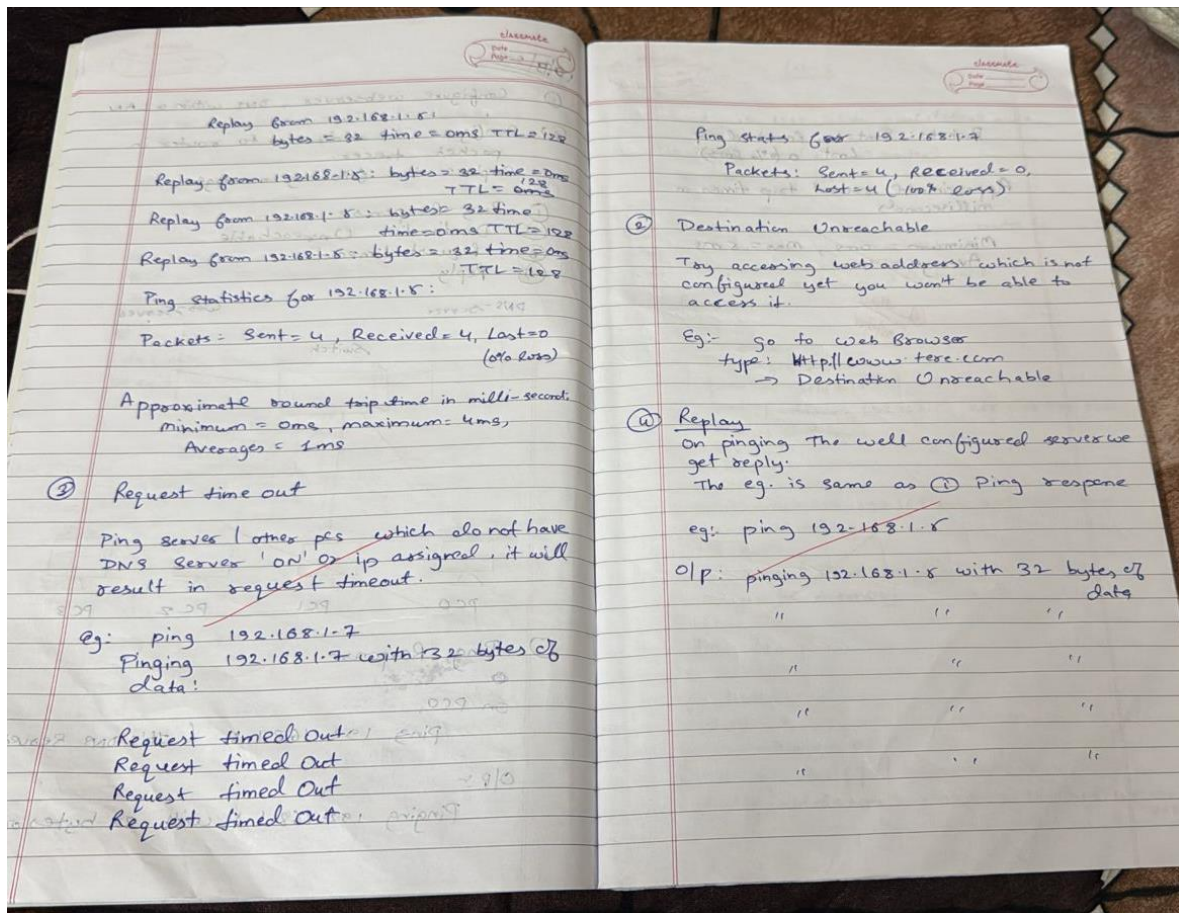 classmate
Date
Page
Replay from 192.168.1.8:
bytes = 32 time = 0ms TTL = 128
Replay from 192168.1.8: bytes = 32 time = 0ms
TTL = 128
Replay from 192.168.1.8: bytes = 32 time
time=0ms TTL=128
Replay from 192.168.1.8: bytes = 32 time=0ms
TTL = 128
Ping statistics for 192.168.1.8:
Packets: Sent=4, Received=4, Last=0
(0% loss)
Approximate round trip time in milli-second:
minimum = 0ms, maximum=4ms,
Averages = 1ms
Request time out
Ping server / other pcs which do not have
DNS Server 'ON' or ip assigned, it will
result in request timeout.
eg: ping 192.168.1.7
Pinging 192.168.1.7 with 32 bytes of
data:
Request timed out
Request timed Out
Request timed Out
Request timed Out
classmate
Date
Page
Ping stats for 192.168.1.7
Packets: Sent=4, Received=0,
Lost=4 (100% loss)
Destination Unreachable
Try accessing web address which is not
configured yet you won't be able to
access it.
Eg:- go to Web Browser
type: http://www.tere.com
→ Destination Unreachable
④ Replay
On pinging The well configured server we
get reply.
The eg. is same as ① Ping respone
eg: ping 192.168.1.8
O/p: pinging 192.168.1.8 with 32 bytes of
data
" " "
" " "
" " "
" " "